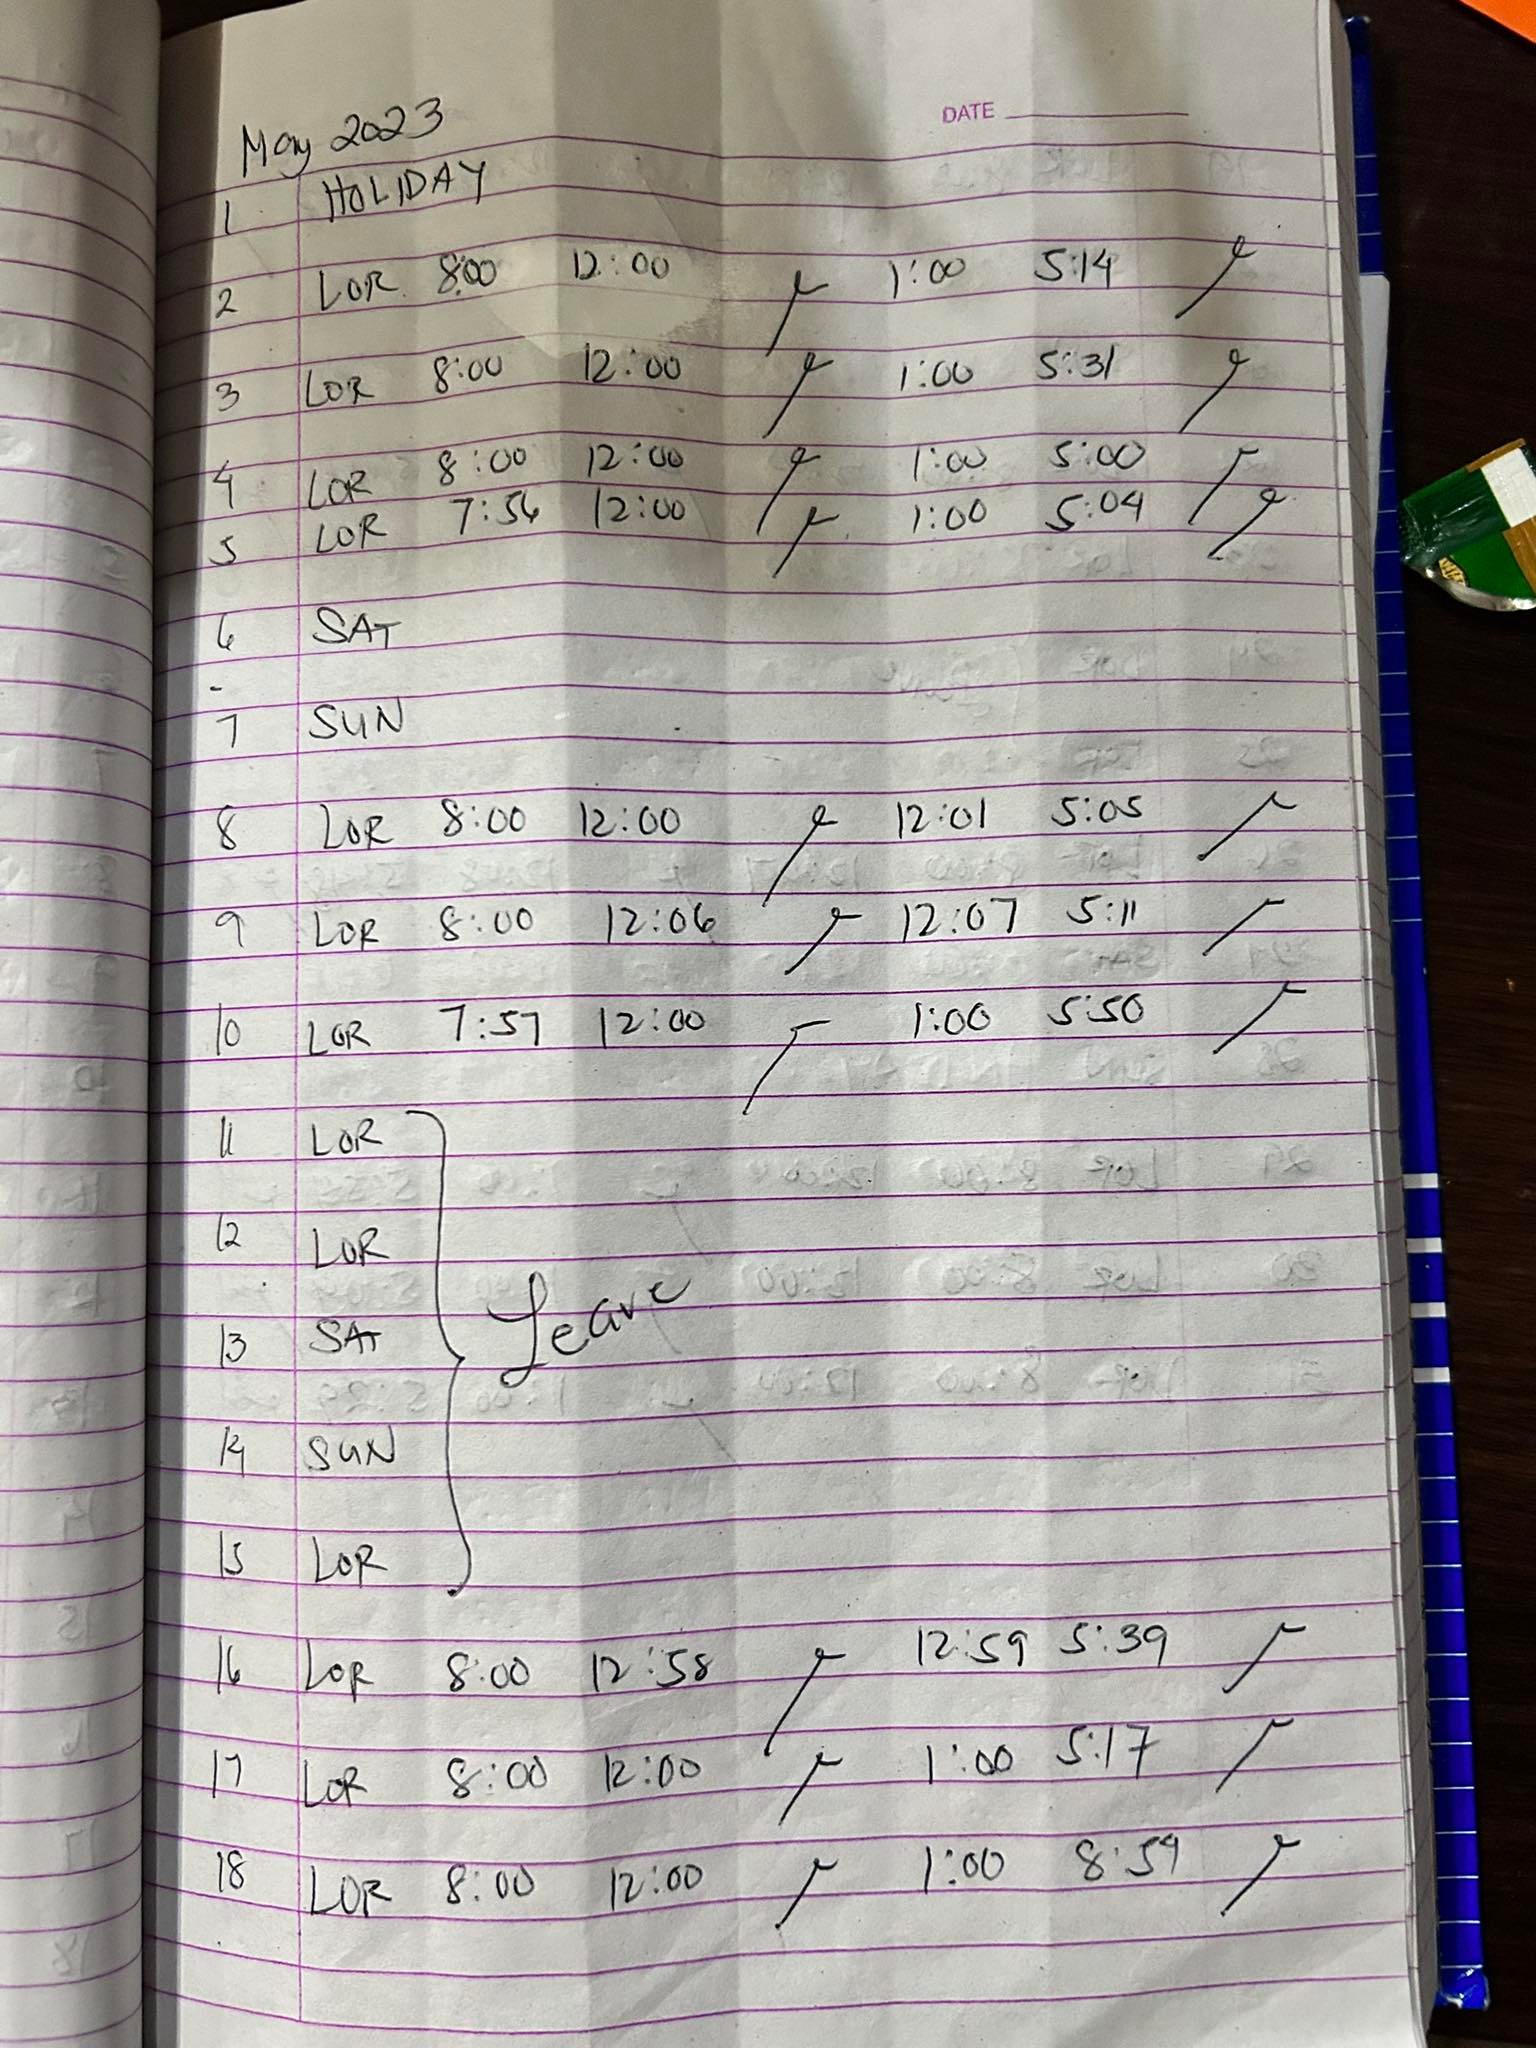 DATE
May 2023
1 HOLIDAY
2 LOR 8:00 12:00 1:00 5:14
3 LOR 8:00 12:00 1:00 5:31
4 LOR 8:00 12:00 1:00 5:00
5 LOR 7:56 12:00 1:00 5:04
6 SAT
7 SUN
8 LOR 8:00 12:00 12:01 5:05
9 LOR 8:00 12:06 12:07 5:11
10 LOR 7:57 12:00 1:00 5:50
11 LOR
12 LOR
Leave
13 SAT
14 SUN
15 LOR
16 LOR 8:00 12:58 12:59 5:39
17 LOR 8:00 12:00 1:00 5:17
18 LOR 8:00 12:00 1:00 8:59